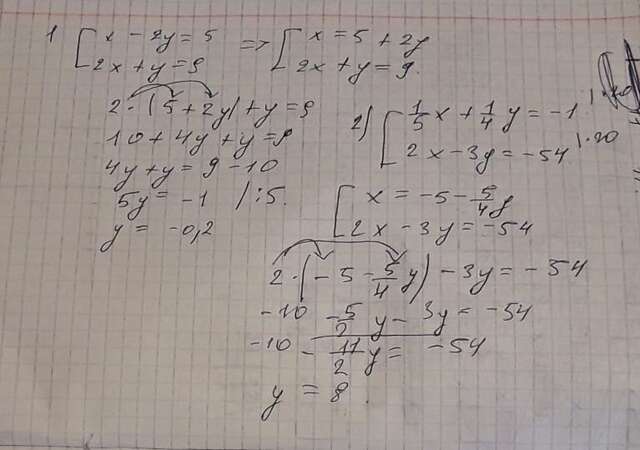 1 { x - 2y = 5 => { x = 5 + 2y
{ 2x + y = 9 { 2x + y = 9.
2·(5 + 2y) + y = 9
10 + 4y + y = 9
4y + y = 9 - 10
5y = -1 /:5.
y = -0,2
2) { 1/5 x + 1/4 y = -1
{ 2x - 3y = -54 |·20
{ x = -5 - 5/4 y
{ 2x - 3y = -54
2·(-5 - 5/4 y) - 3y = -54
-10 - 5/2 y - 3y = -54
-10 - 11/2 y = -54
y = 8.